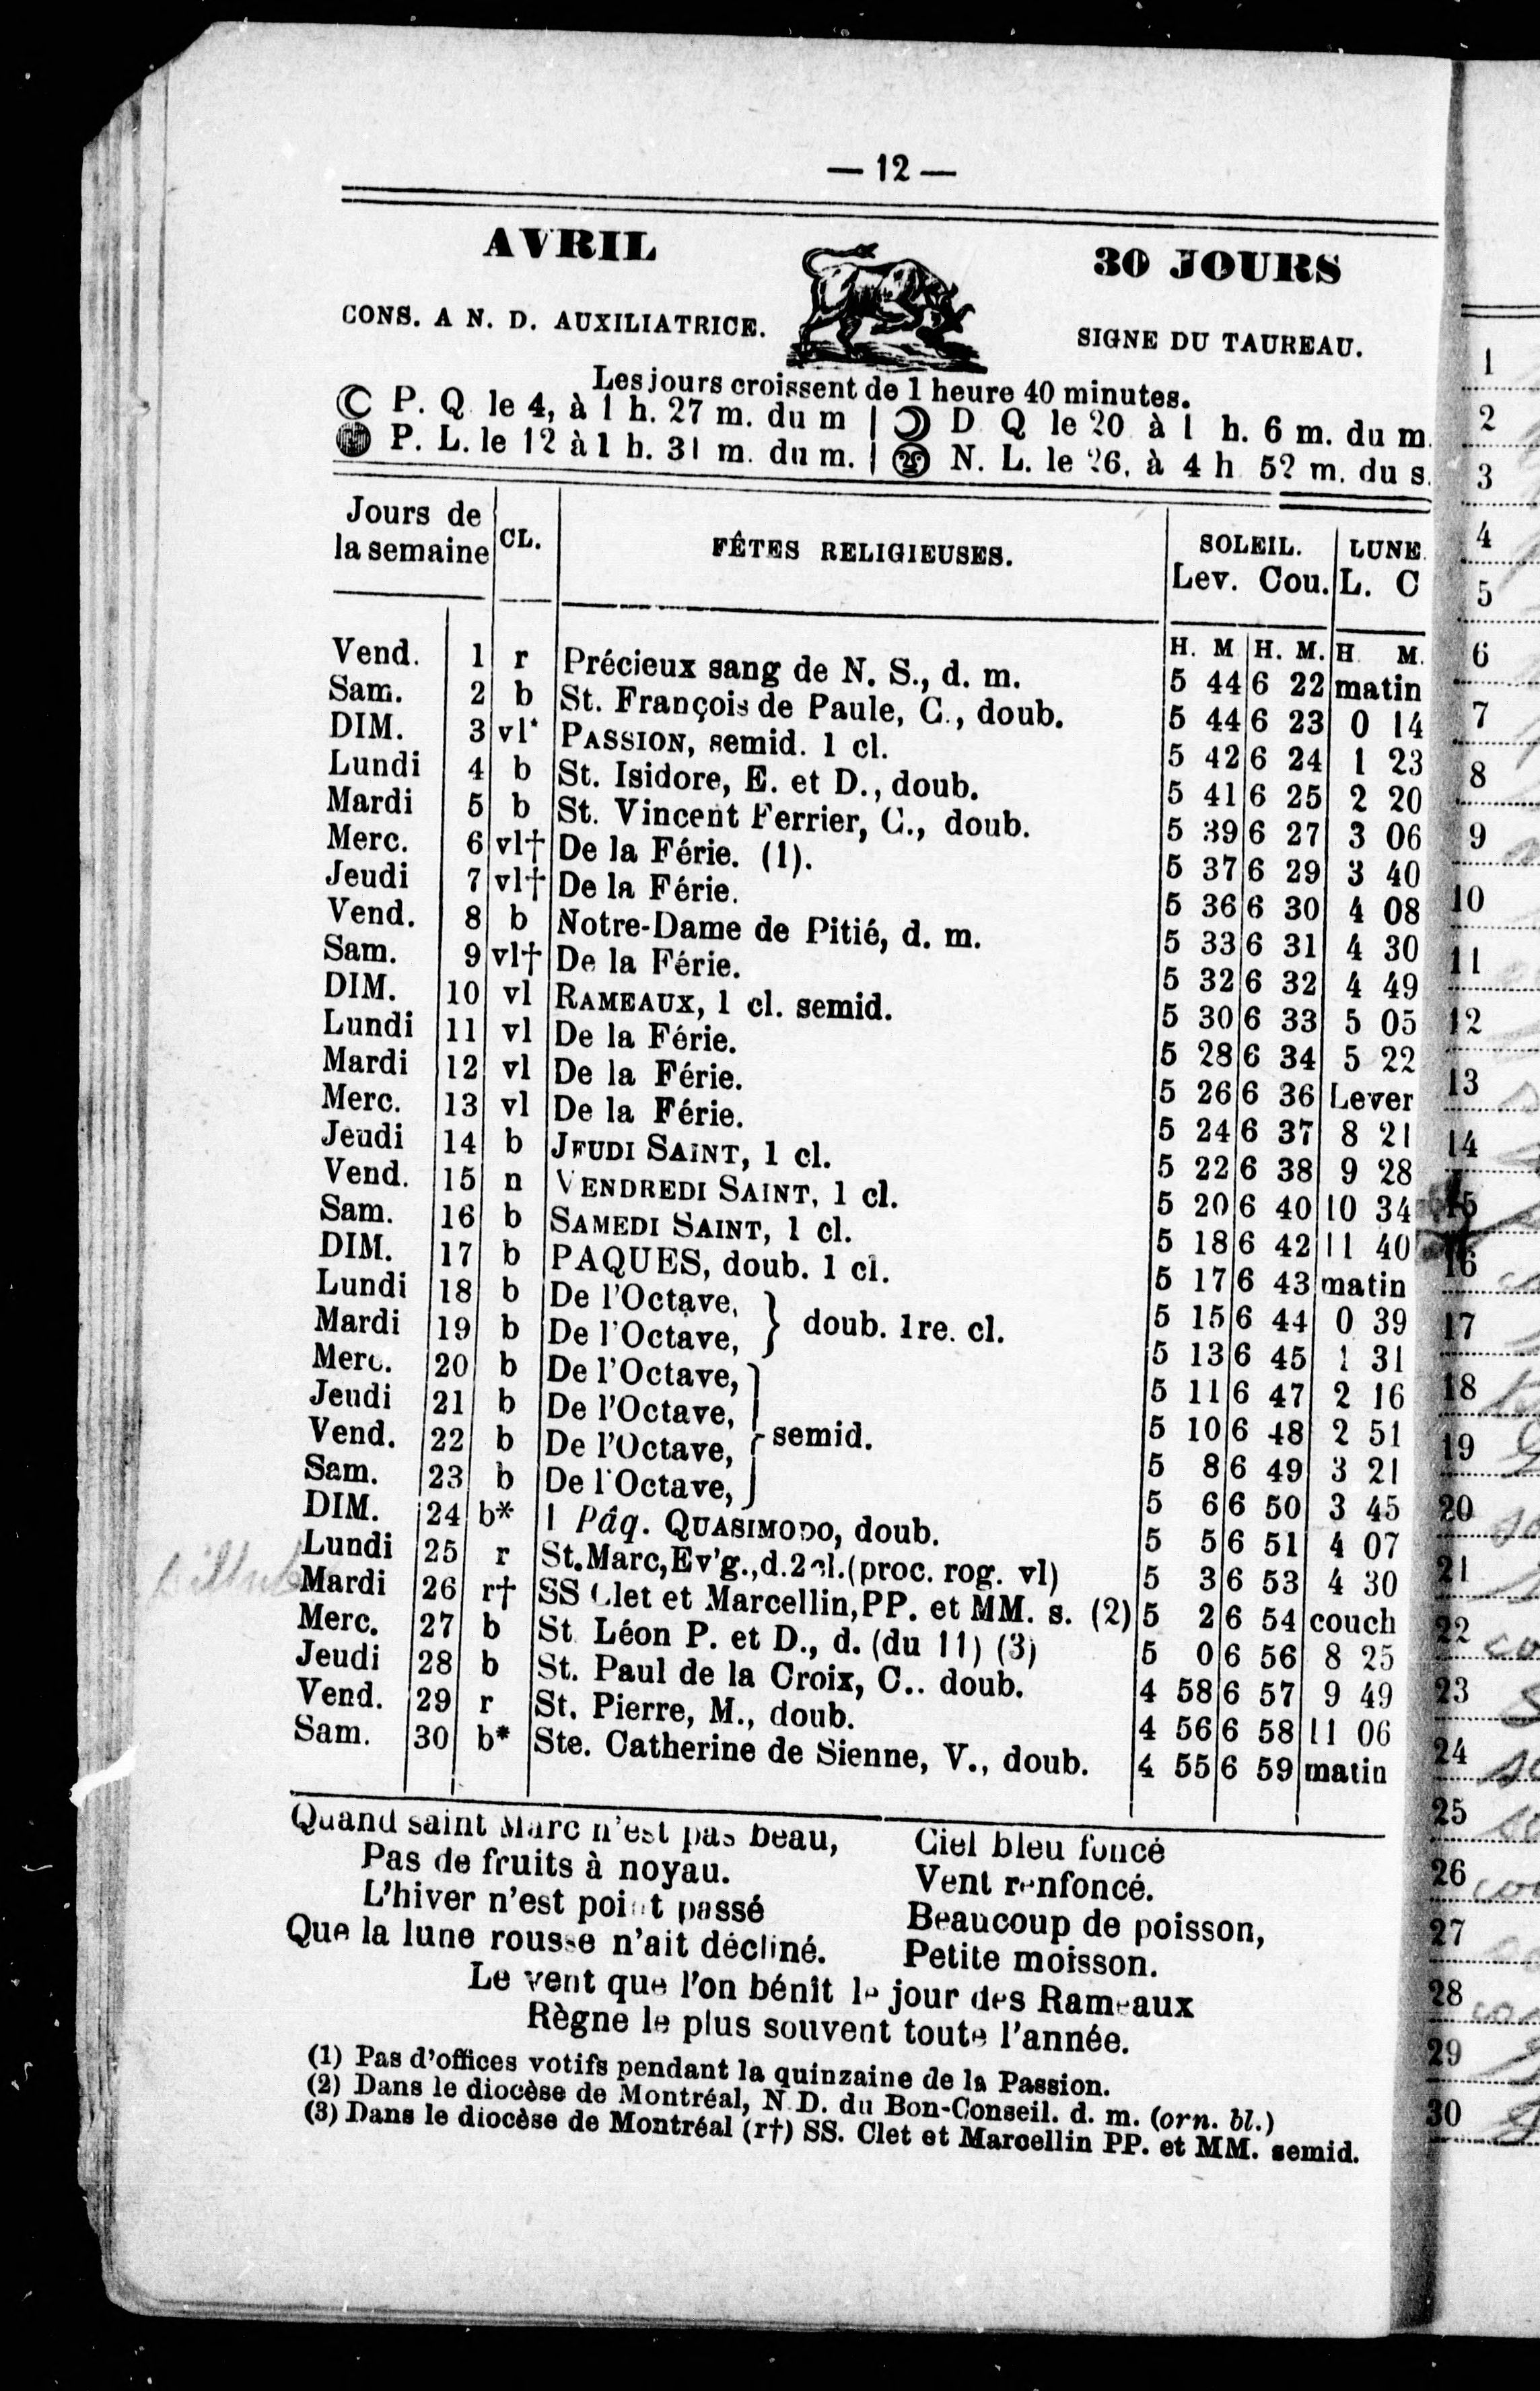 — 12 —
AVRIL
30 JOURS
CONS. A N. D. AUXILIATRICE.
SIGNE DU TAUREAU.
Les jours croissent de 1 heure 40 minutes.
P. Q. le 4, à 1 h. 27 m. du m | D Q le 20 à 1 h. 6 m. du m.
P. L. le 12 à 1 h. 31 m. du m. | N. L. le 26, à 4 h 52 m. du s.
Jours de la semaine | CL. | FÊTES RELIGIEUSES. | SOLEIL. Lev. Cou. | LUNE. L. C
H. M | H. M. | H M.
Vend. 1 r Précieux sang de N. S., d. m. 5 44 6 22 matin
Sam. 2 b St. François de Paule, C., doub. 5 44 6 23 0 14
DIM. 3 vl* PASSION, semid. 1 cl. 5 42 6 24 1 23
Lundi 4 b St. Isidore, E. et D., doub. 5 41 6 25 2 20
Mardi 5 b St. Vincent Ferrier, C., doub. 5 39 6 27 3 06
Merc. 6 vl† De la Férie. (1). 5 37 6 29 3 40
Jeudi 7 vl† De la Férie. 5 36 6 30 4 08
Vend. 8 b Notre-Dame de Pitié, d. m. 5 33 6 31 4 30
Sam. 9 vl† De la Férie. 5 32 6 32 4 49
DIM. 10 vl RAMEAUX, 1 cl. semid. 5 30 6 33 5 05
Lundi 11 vl De la Férie. 5 28 6 34 5 22
Mardi 12 vl De la Férie. 5 26 6 36 Lever
Merc. 13 vl De la Férie. 5 24 6 37 8 21
Jeudi 14 b JEUDI SAINT, 1 cl. 5 22 6 38 9 28
Vend. 15 n VENDREDI SAINT, 1 cl. 5 20 6 40 10 34
Sam. 16 b SAMEDI SAINT, 1 cl. 5 18 6 42 11 40
DIM. 17 b PAQUES, doub. 1 cl. 5 17 6 43 matin
Lundi 18 b De l'Octave, } doub. 1re. cl. 5 15 6 44 0 39
Mardi 19 b De l'Octave, 5 13 6 45 1 31
Merc. 20 b De l'Octave, 5 11 6 47 2 16
Jeudi 21 b De l'Octave, } semid. 5 10 6 48 2 51
Vend. 22 b De l'Octave, 5 8 6 49 3 21
Sam. 23 b De l'Octave, 5 6 6 50 3 45
DIM. 24 b* 1 Pâq. QUASIMODO, doub. 5 5 6 51 4 07
Lundi 25 r St. Marc, Ev'g., d. 2 cl. (proc. rog. vl) 5 3 6 53 4 30
Mardi 26 r† SS Clet et Marcellin, PP. et MM. s. (2) 5 2 6 54 couch
Merc. 27 b St Léon P. et D., d. (du 11) (3) 5 0 6 56 8 25
Jeudi 28 b St. Paul de la Croix, C.. doub. 4 58 6 57 9 49
Vend. 29 r St. Pierre, M., doub. 4 56 6 58 11 06
Sam. 30 b* Ste. Catherine de Sienne, V., doub. 4 55 6 59 matin
Quand saint Marc n'est pas beau,
Pas de fruits à noyau.
L'hiver n'est point passé
Que la lune rousse n'ait décliné.
Ciel bleu foncé
Vent renfoncé.
Beaucoup de poisson,
Petite moisson.
Le vent que l'on bénit le jour des Rameaux
Règne le plus souvent toute l'année.
(1) Pas d'offices votifs pendant la quinzaine de la Passion.
(2) Dans le diocèse de Montréal, N. D. du Bon-Conseil. d. m. (orn. bl.)
(3) Dans le diocèse de Montréal (r†) SS. Clet et Marcellin PP. et MM. semid.
1
2
3
4
5
6
7
8
9
10
11
12
13
14
15
16
17
18
19
20
21
22
23
24
25
26
27
28
29
30